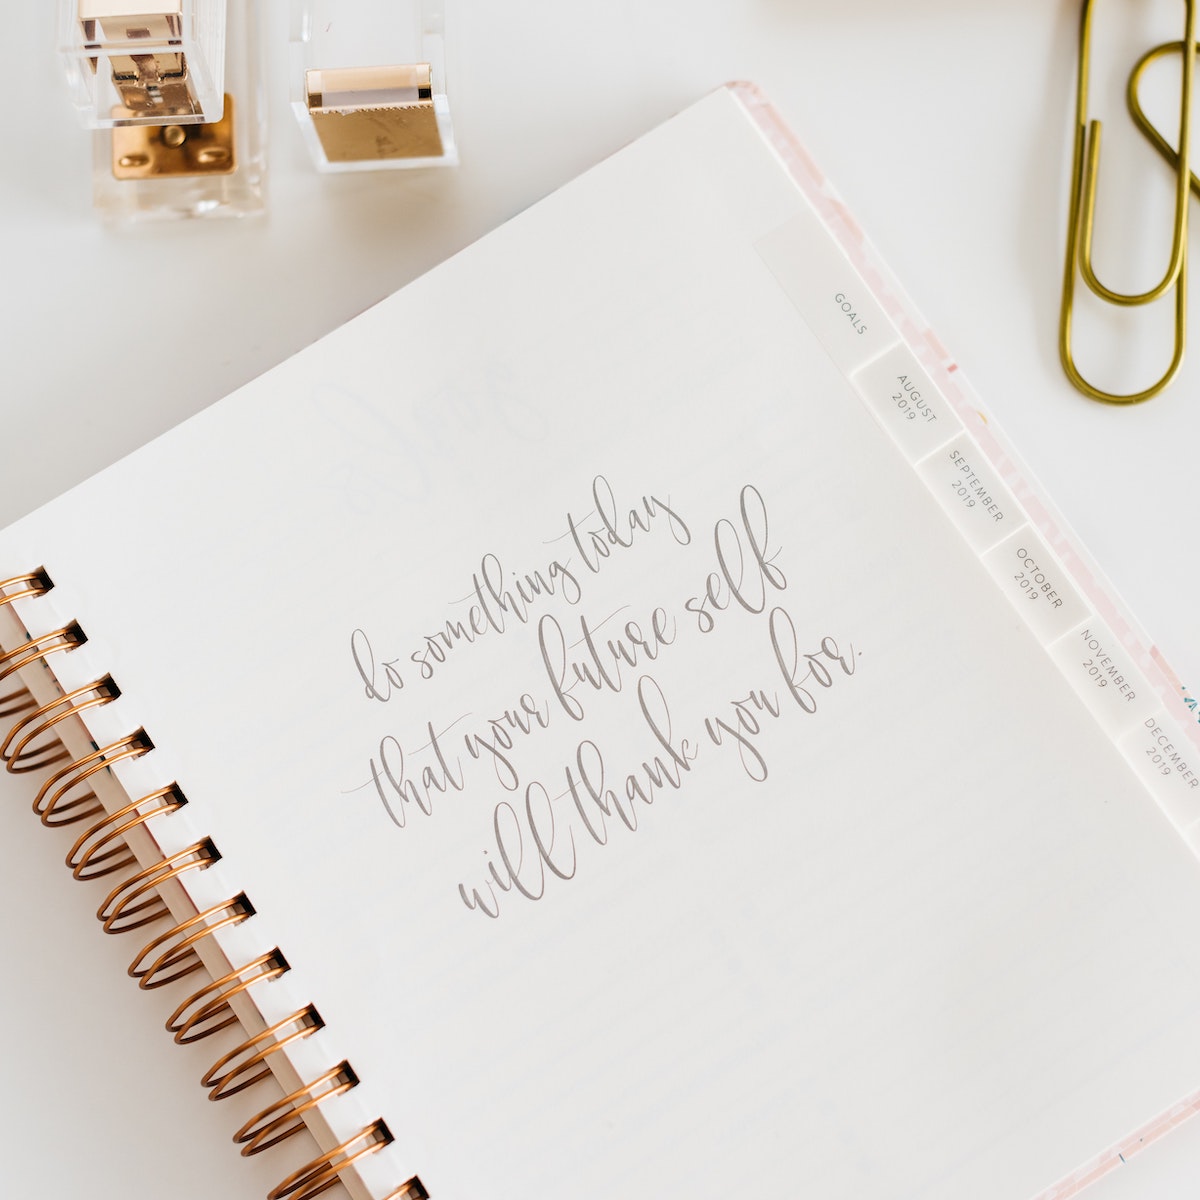 do something today
that your future self
will thank you for.
GOALS
AUGUST
2019
SEPTEMBER
2019
OCTOBER
2019
NOVEMBER
2019
DECEMBER
2019